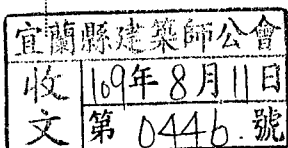 宜蘭縣建築師公會
收文
109年8月11日
第0446.號